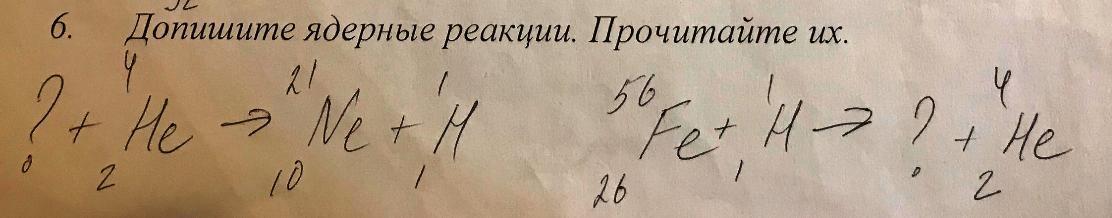 6. Допишите ядерные реакции. Прочитайте их.
? + ⁴₂He → ²¹₁₀Ne + ¹₁H ⁵⁶₂₆Fe + ¹₁H → ? + ⁴₂He